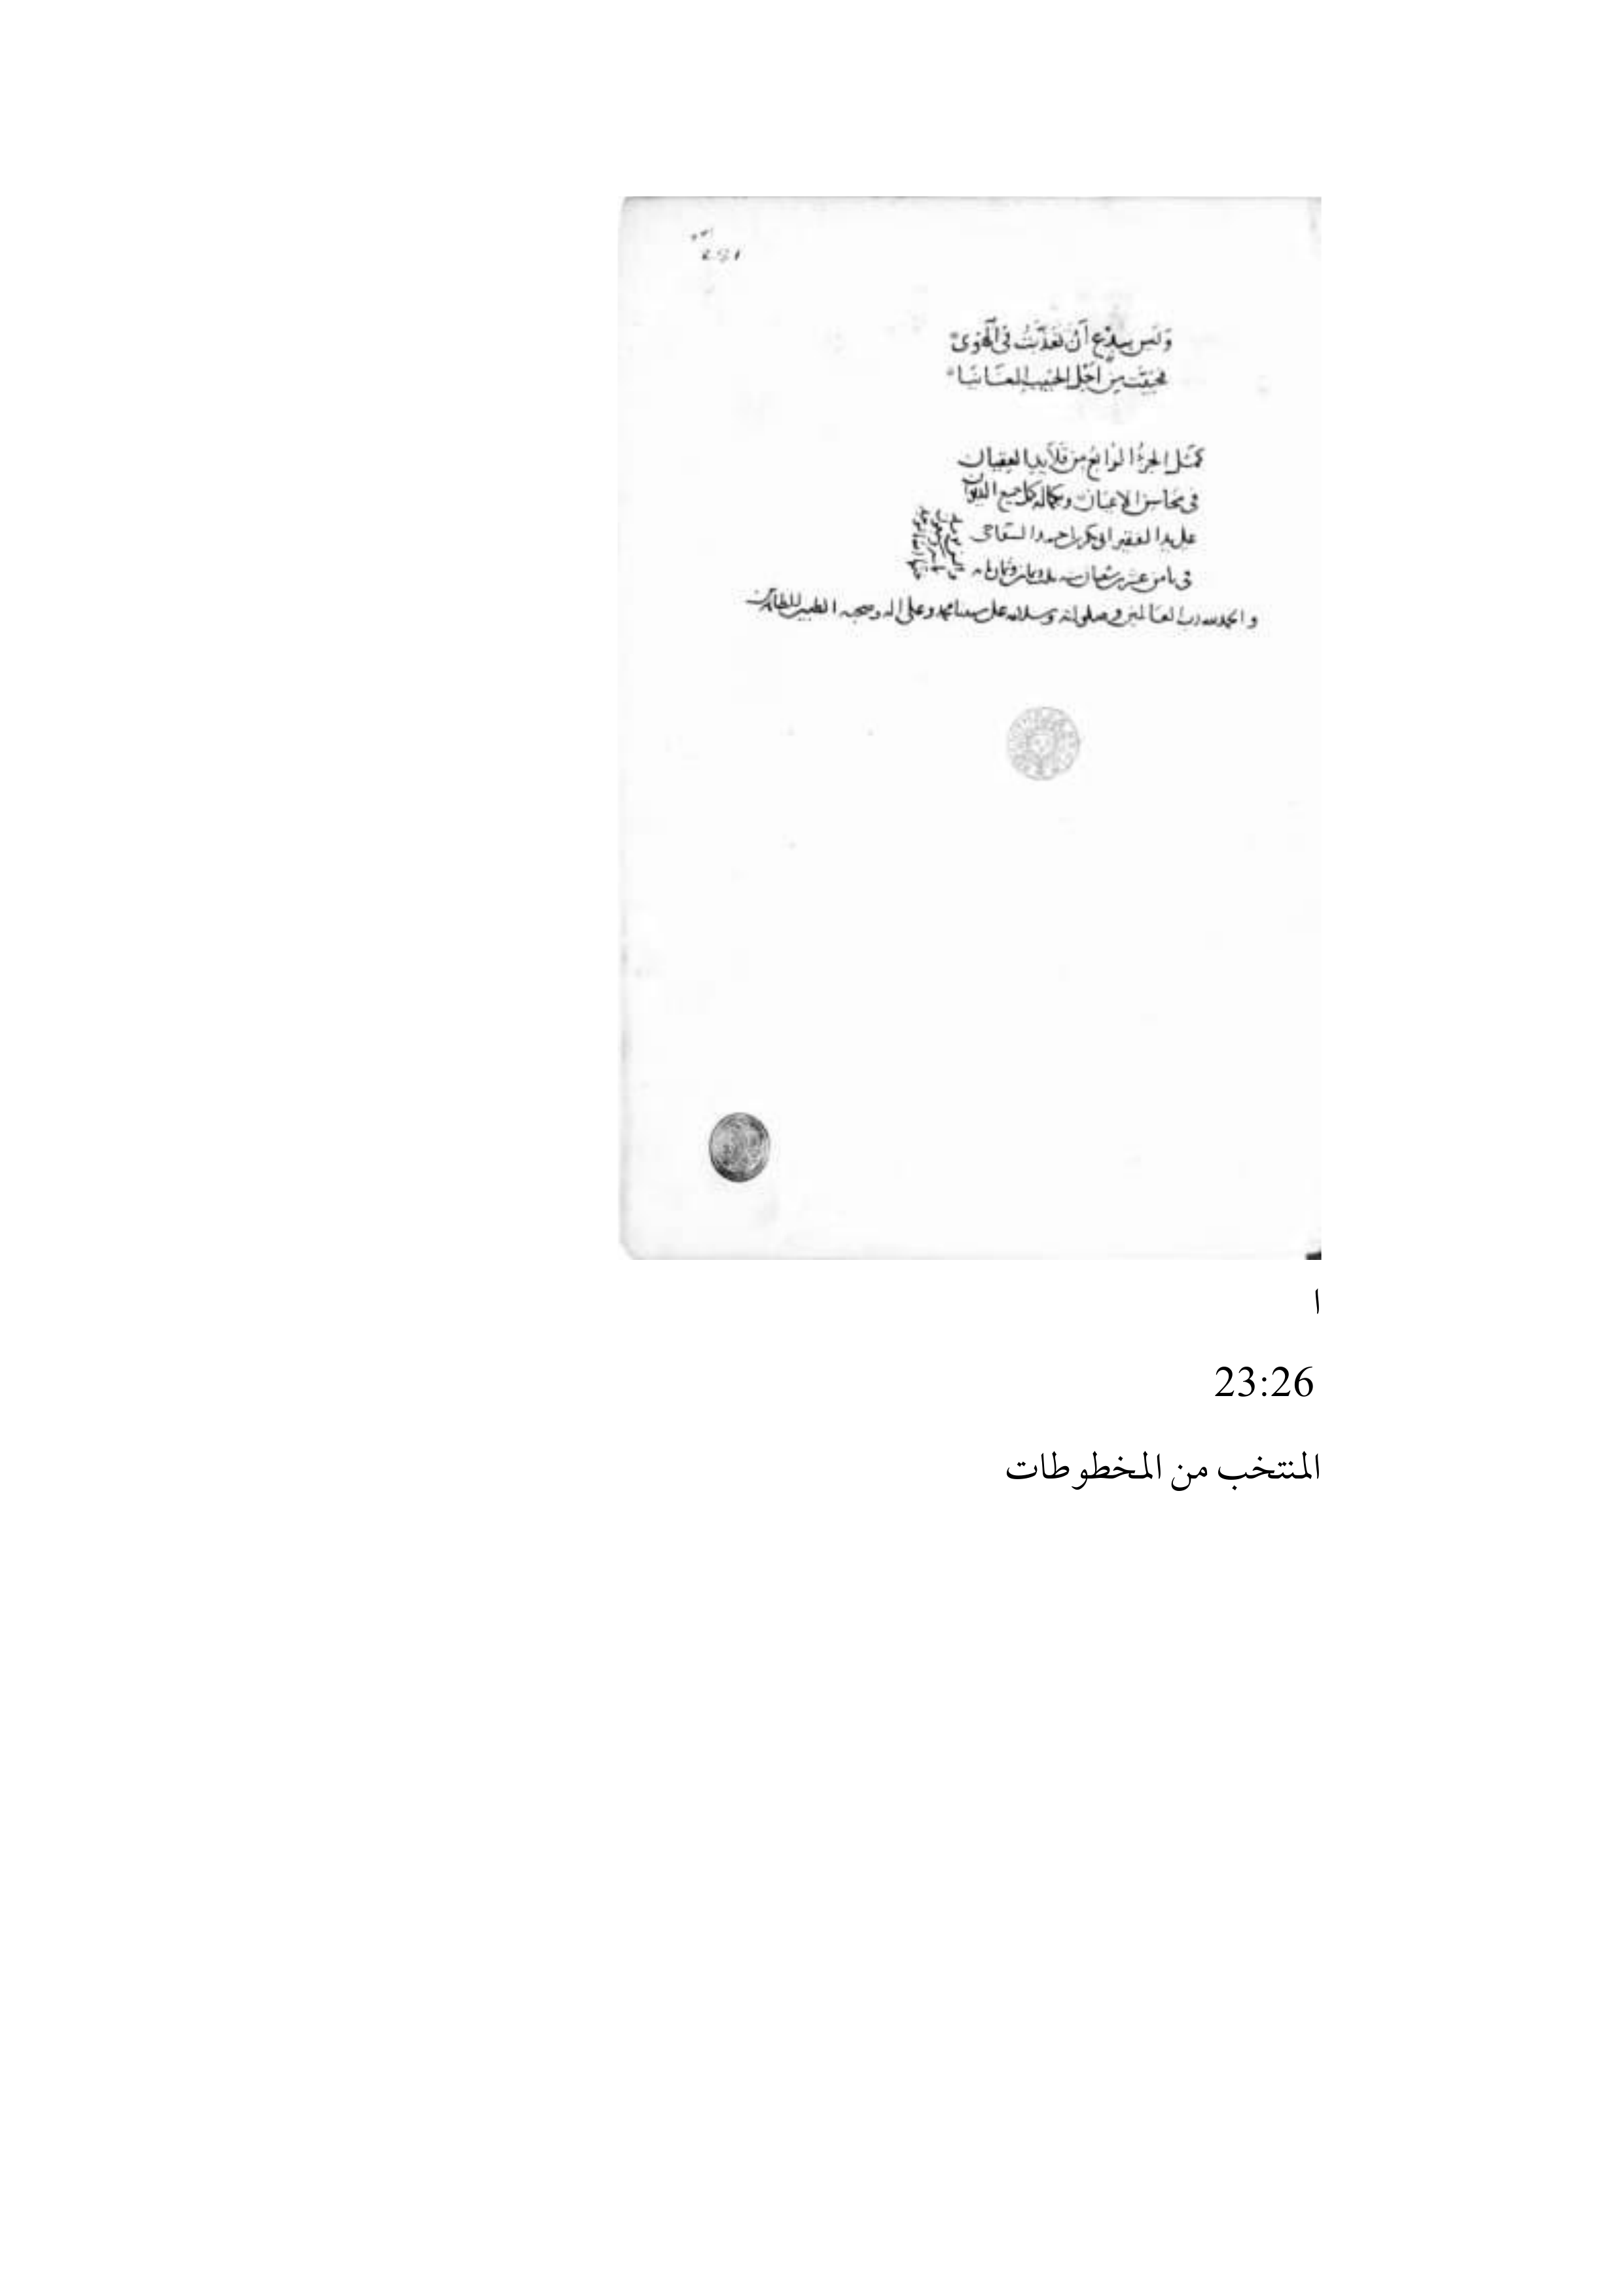 231
وَلَيس ببدْع أَنْ تعَذَّبْتُ في الهَوى
من أَجْل الحَبيب
كمُل الجزءُ الرابع من قلايد العقيان
في محاسن الاعيان وبكماله كمل جميع الديوان
على يد الفقير ابي بكر احمد
في ثامن عشر شعبان سنه وثمان مايه
والحمد لله رب العالمين وصلواته وسلامه على سيدنا محمد وعلى اله وصحبه الطيبين الطاهرين
ا
23:26
المنتخب من المخطوطات